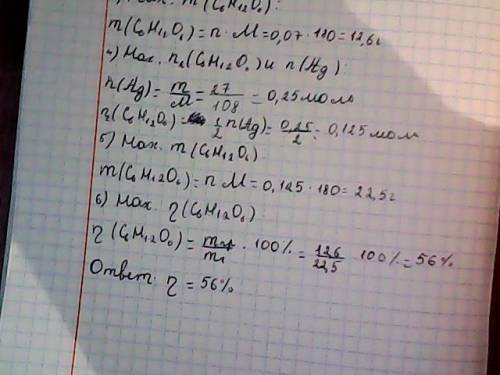 m(C₆H₁₂O₆):
m(C₆H₁₂O₆) = n · M = 0,07 · 180 = 12,6г
4) Нах. n₂(C₆H₁₂O₆) и n(Ag)
n(Ag) = m/M = 27/108 = 0,25 моль
n(C₆H₁₂O₆) = 1/2 n(Ag) = 0,25/2 = 0,125 моль
5) Нах. m(C₆H₁₂O₆)
m(C₆H₁₂O₆) = n M = 0,125 · 180 = 22,5г
6) Нах. η(C₆H₁₂O₆)
η(C₆H₁₂O₆) = / m₁ · 100% = 12,6/22,5 · 100% = 56%
Ответ: η = 56%